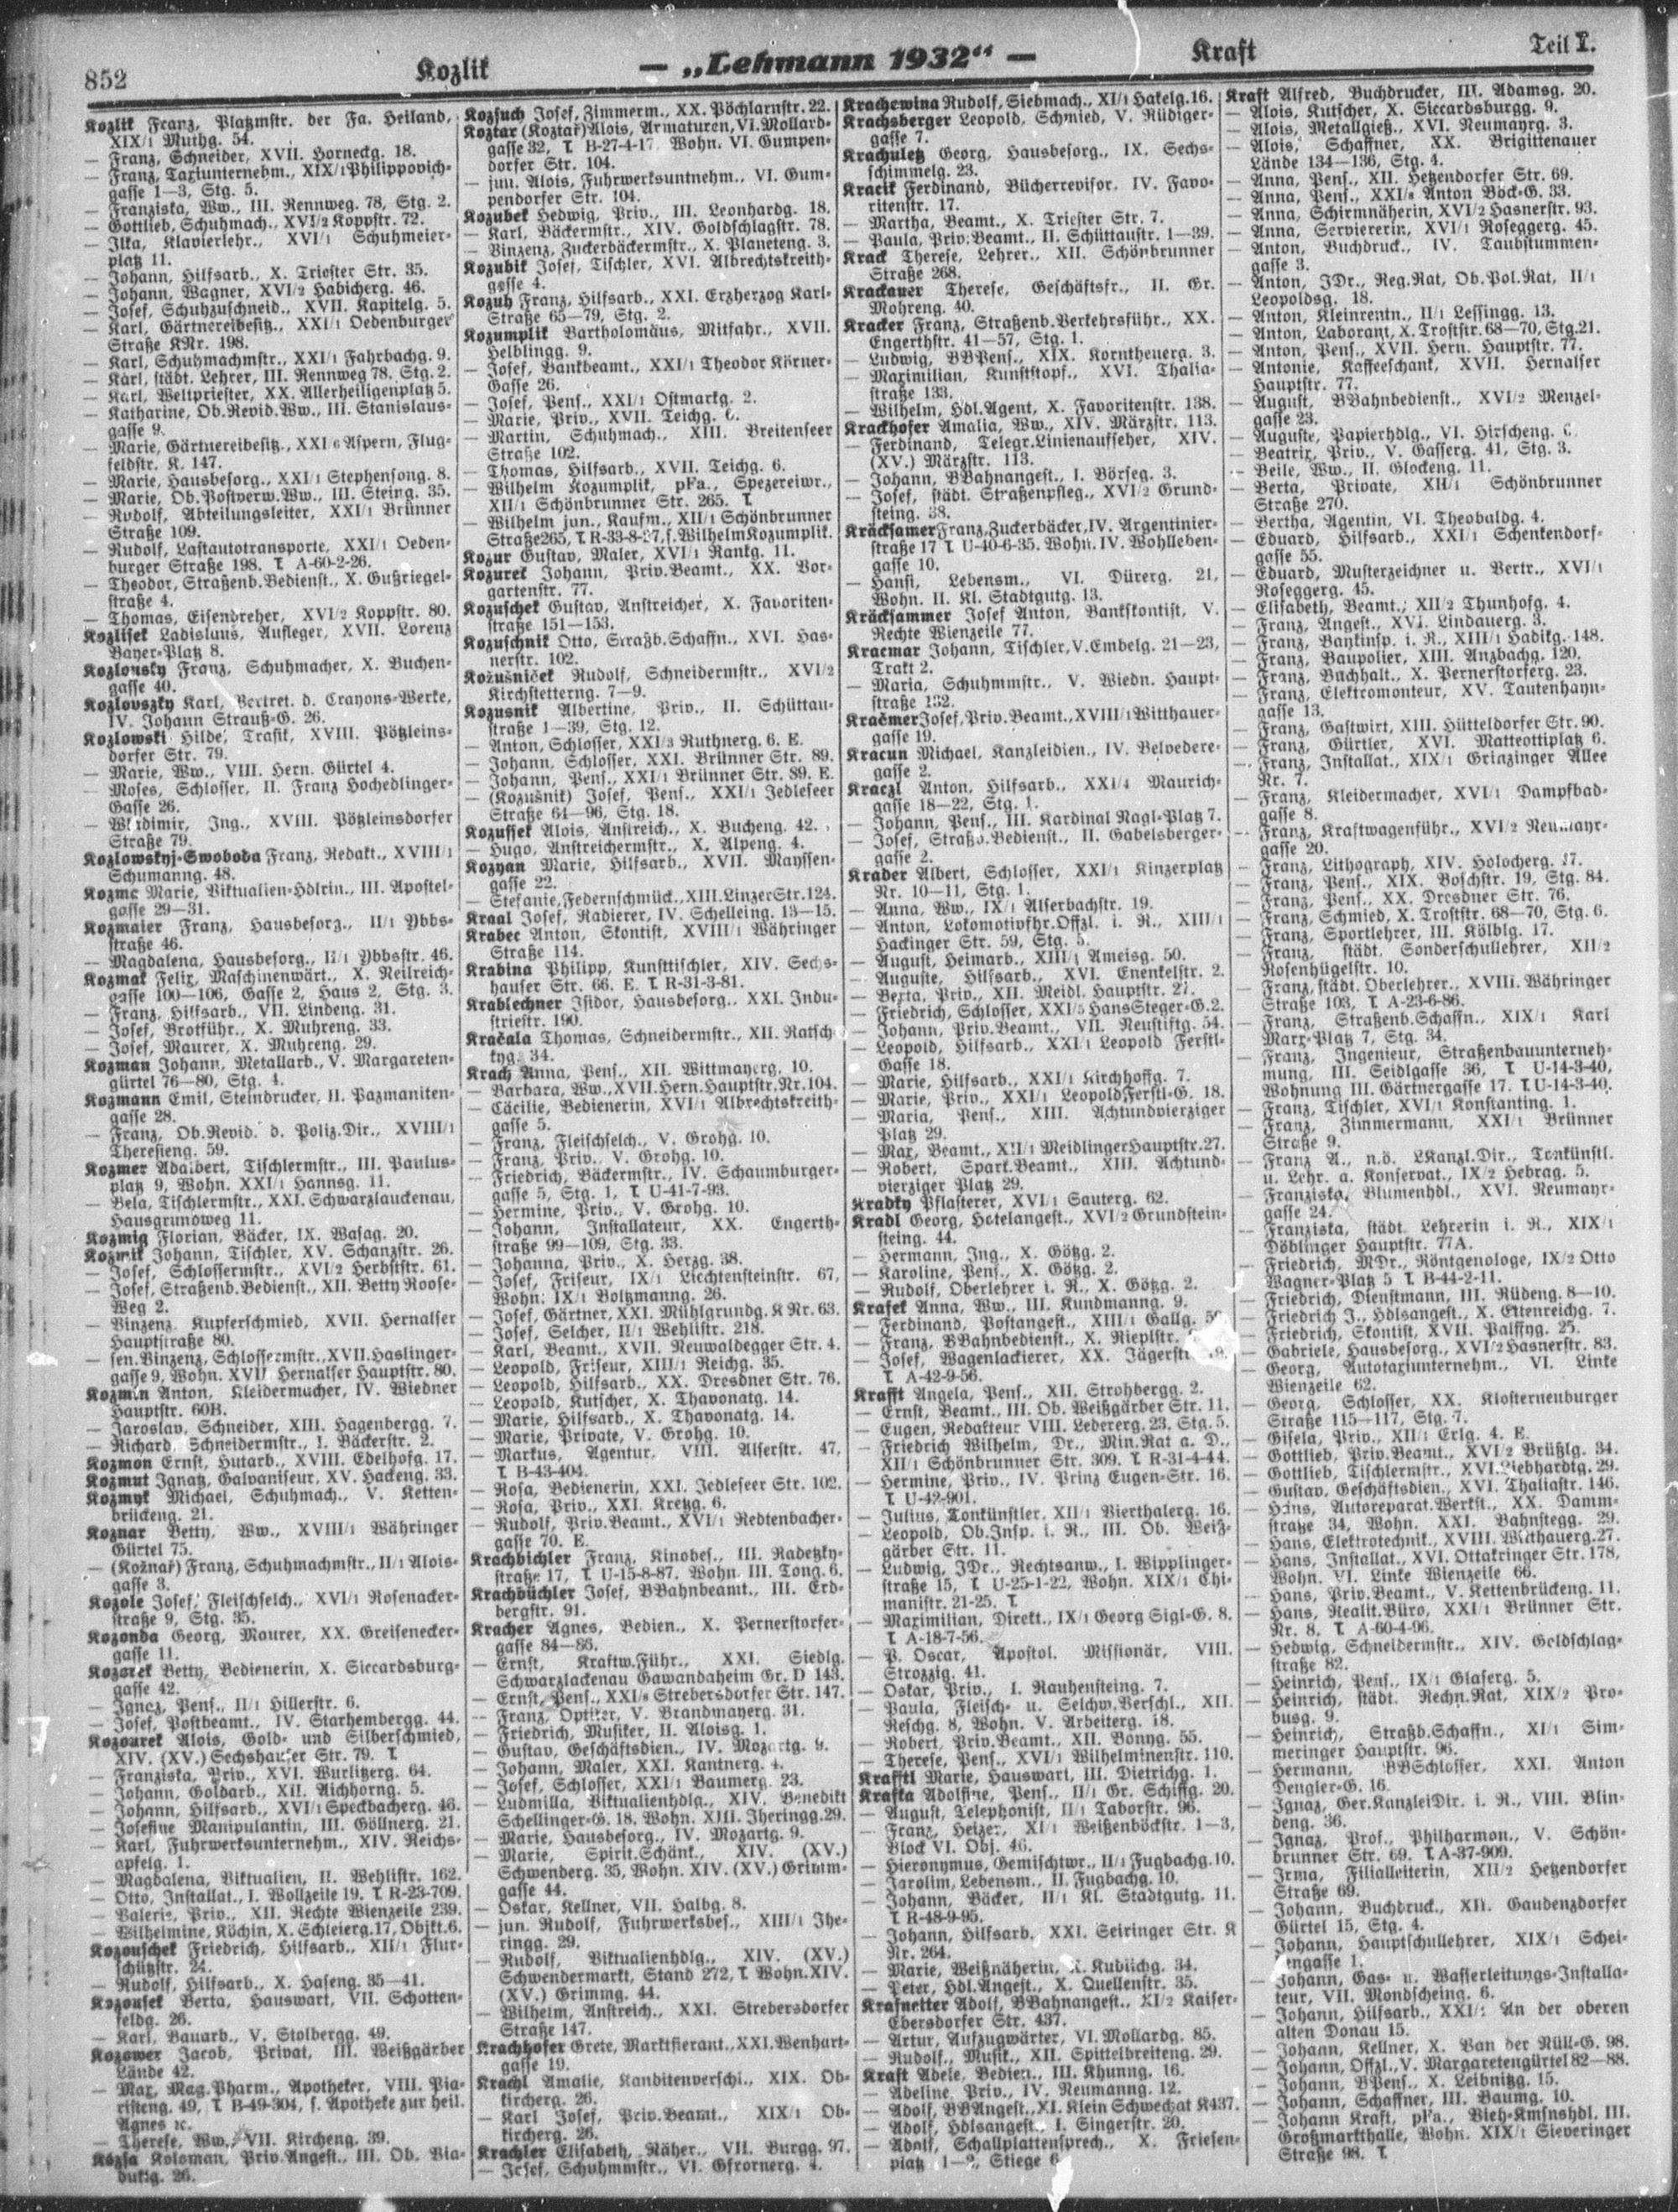 852
Kozlik
— „Lehmann 1932“ —
Kraft
Teil I.
Kozlik Franz, Platzmstr. der Fa. Heiland,
XIX/1 Muthg. 54.
— Franz, Schneider, XVII. Horneckg. 18.
— Franz, Taxiunternehm., XIX/1 Philippovich-
gasse 1—3, Stg. 5.
— Franziska, Ww., III. Rennweg. 78, Stg. 2.
— Gottlieb, Schuhmach., XVI/2 Koppstr. 72.
— Ilka, Klavierlehr., XVI/1 Schuhmeier-
platz 11.
— Johann, Hilfsarb., X. Triester Str. 35.
— Johann, Wagner, XVI/2 Habicherg. 46.
— Josef, Schuhzuschneid., XVII. Kapitelg. 5.
— Karl, Gärtnereibesitz., XXI/1 Oedenburger
Straße KNr. 198.
— Karl, Schuhmachmstr., XXI/1 Fahrbachg. 9.
— Karl, städt. Lehrer, III. Rennweg 78, Stg. 2.
— Karl, Weltpriester, XX. Allerheiligenplatz 5.
— Katharine, Ob.Revid.Ww., III. Stanislaus-
gasse 9.
— Marie, Gärtnereibesitz., XXI/6 Aspern, Flug-
feldstr. K. 147.
— Marie, Hausbesorg., XXI/1 Stephensong. 8.
— Marie, Ob.Postverw.Ww., III. Steing. 35.
— Rudolf, Abteilungsleiter, XXI/1 Brünner
Straße 109.
— Rudolf, Lastautotransporte, XXI/1 Oeden-
burger Straße 198. T. A-60-2-26.
— Theodor, Straßenb.Bedienst., X. Gußriegel-
straße 4.
— Thomas, Eisendreher, XVI/2 Koppstr. 80.
Kozlisek Ladislaus, Aufleger, XVII. Lorenz
Bayer-Platz 8.
Kozlovsky Franz, Schuhmacher, X. Buchen-
gasse 40.
Kozlovszky Karl, Vertret. d. Crayons-Werke,
IV. Johann Strauß-G. 26.
Kozlowski Hilde, Trafik, XVIII. Pötzleins-
dorfer Str. 79.
— Marie, Ww., VIII. Hern. Gürtel 4.
— Moses, Schlosser, II. Franz Hochedlinger-
Gasse 26.
— Wladimir, Ing., XVIII. Pötzleinsdorfer
Straße 79.
Kozlowskyj-Swoboda Franz, Redakt., XVIII/1
Schumanng. 48.
Kozma Marie, Viktualien-Hdlrin., III. Apostel-
gasse 29—31.
Kozmaier Franz, Hausbesorg., II/1 Ybbs-
straße 46.
— Magdalena, Hausbesorg., II/1 Ybbsstr. 46.
Kozmak Felix, Maschinenwärt., X. Neilreich-
gasse 100—106, Gasse 2, Haus 2, Stg. 3.
— Franz, Hilfsarb., VII. Lindeng. 31.
— Josef, Brotführ., X. Muhreng. 33.
— Josef, Maurer, X. Muhreng. 29.
Kozman Johann, Metallarb., V. Margareten-
gürtel 76—80, Stg. 4.
Kozmann Emil, Steindrucker, II. Pazmaniten-
gasse 28.
— Franz, Ob.Revid. d. Poliz.Dir., XVIII/1
Theresieng. 59.
Kozmer Adalbert, Tischlermstr., III. Paulus-
platz 9, Wohn. XXI/1 Hannsg. 11.
— Bela, Tischlermstr., XXI. Schwarzlackenau,
Hausgrundweg 11.
Kozmig Florian, Bäcker, IX. Wasag. 20.
Kozmik Johann, Tischler, XV. Schanzstr. 26.
— Josef, Schlossermstr., XVI/2 Herbststr. 61.
— Josef, Straßend.Bedienst., XII. Betty Roose-
Weg 2.
— Vinzenz, Kupferschmied, XVII. Hernalser
Hauptstraße 80.
— sen. Vinzenz, Schlossermstr., XVII. Haslinger-
gasse 9, Wohn. XVII. Hernalser Hauptstr. 80.
Kozmin Anton, Kleidermacher, IV. Wiedner
Hauptstr. 60B.
— Jaroslav, Schneider, XIII. Hagenbergg. 7.
— Richard, Schneidermstr., I. Bäckerstr. 2.
Kozmon Ernst, Hutarb., XVIII. Edelhofg. 17.
Kozmut Ignatz, Galvaniseur, XV. Hackeng. 33.
Kozmyk Michael, Schuhmach., V. Ketten-
brückeng. 21.
Koznar Betty, Ww., XVIII/1 Währinger
Gürtel 75.
— (Kožnař) Franz, Schuhmachmstr., II/1 Alois-
gasse 3.
Kozole Josef, Fleischselch., XVI/1 Rosenacker-
straße 9, Stg. 35.
Kozonda Georg, Maurer, XX. Greisenecker-
gasse 11.
Kozorek Betty, Bedienerin, X. Siccardsburg-
gasse 42.
— Ignez, Pens., II/1 Hillerstr. 6.
— Josef, Postbeamt., IV. Starhembergg. 44.
Kozourek Alois, Gold- und Silberschmied,
XIV. (XV.) Sechshauser Str. 79. T.
— Franziska, Priv., XVI. Wurlitzerg. 64.
— Johann, Goldarb., XII. Aichhorng. 5.
— Johann, Hilfsarb., XVI/1 Speckbacherg. 46.
— Josefine Manipulantin, III. Göllnerg. 21.
— Karl, Fuhrwerksunternehm., XIV. Reichs-
apfelg. 1.
— Magdalena, Viktualien, II. Wehlistr. 162.
— Otto, Installat., I. Wollzeile 19. T. R-23-709.
— Valerie, Priv., XII. Rechte Wienzeile 239.
— Wilhelmine, Köchin, X. Schleierg. 17, Objkt. 6.
Kozouschek Friedrich, Hilfsarb., XII/1 Flur-
schützstr. 24.
— Rudolf, Hilfsarb., X. Haseng. 35—41.
Kozousek Berta, Hauswart, VII. Schotten-
feldg. 26.
— Karl, Bauarb., V. Stolbergg. 49.
Kozower Jacob, Privat, III. Weißgärber
Lände 42.
— Max, Mag.Pharm., Apotheker, VIII. Pia-
risteng. 49, T. B-49-304, s. Apotheke zur heil.
Agnes ꝛc.
— Therese, Ww., VII. Kircheng. 39.
Kozsa Koloman, Priv.Angest., III. Ob. Via-
duktg. 26.
Kozsuch Josef, Zimmerm., XX. Pöchlarnstr. 22.
Koztar (Koztař) Alois, Armaturen, VI. Mollard-
gasse 32, T. B-27-4-17, Wohn. VI. Gumpen-
dorfer Str. 104.
— jun. Alois, Fuhrwerksuntnehm., VI. Gum-
pendorfer Str. 104.
Kozubek Hedwig, Priv., III. Leonhardg. 18.
— Karl, Bäckermstr., XIV. Goldschlagstr. 78.
— Vinzenz, Zuckerbäckermstr., X. Planeteng. 3.
Kozubik Josef, Tischler, XVI. Albrechtskreith-
gasse 4.
Kozuh Franz, Hilfsarb., XXI. Erzherzog Karl-
Straße 65—79, Stg. 2.
Kozumplik Bartholomäus, Mitfahr., XVII.
Helblingg. 9.
— Josef, Bankbeamt., XXI/1 Theodor Körner-
Gasse 26.
— Josef, Pens., XXI/1 Ostmarkg. 2.
— Marie, Priv., XVII. Teichg. 6.
— Martin, Schuhmach., XIII. Breitenseer
Straße 102.
— Thomas, Hilfsarb., XVII. Teichg. 6.
— Wilhelm Kozumplik, pFa., Spezereiwr.,
XII/1 Schönbrunner Str. 265. T.
— Wilhelm jun., Kaufm., XII/1 Schönbrunner
Straße 265, T. R-33-8-37, s. Wilhelm Kozumplik.
Kozur Gustav, Maler, XVI/1 Rankg. 11.
Kozurek Johann, Priv.Beamt., XX. Vor-
gartenstr. 77.
Kozuschek Gustav, Anstreicher, X. Favoriten-
straße 151—153.
Kozuschnik Otto, Straßb.Schaffn., XVI. Has-
nerstr. 102.
Kožušniček Rudolf, Schneidermstr., XVI/2
Kirchstetterng. 7—9.
Kozusnik Albertine, Priv., II. Schüttau-
straße 1—39, Stg. 12.
— Anton, Schlosser, XXI/3 Ruthnerg. 6. E.
— Johann, Schlosser, XXI. Brünner Str. 89.
— Johann, Pens., XXI/1 Brünner Str. 89. E.
— (Kozušnik) Josef, Pens., XXI/1 Jedleseer
Straße 64—96, Stg. 18.
Kozussek Alois, Anstreich., X. Bucheng. 42.
— Hugo, Anstreichermstr., X. Alpeng. 4.
Kozyan Marie, Hilfsarb., XVII. Mayssen-
gasse 22.
— Stefanie, Federnschmück., XIII. Linzer Str. 124.
Kraal Josef, Radierer, IV. Schelleing. 13—15.
Krabec Anton, Skontist, XVIII/1 Währinger
Straße 114.
Krabina Philipp, Kunsttischler, XIV. Sechs-
hauser Str. 66. E. T. R-31-3-81.
Krablechner Isidor, Hausbesorg., XXI. Indu-
striestr. 190.
Kračala Thomas, Schneidermstr., XII. Ratsch-
kyg. 34.
Krach Anna, Pens., XII. Wittmayerg. 10.
— Barbara, Ww., XVII. Hern. Hauptstr. Nr. 104.
— Cäcilie, Bedienerin, XVI/1 Albrechtskreith-
gasse 5.
— Franz, Fleischselch., V. Grohg. 10.
— Franz, Priv., V. Grohg. 10.
— Friedrich, Bäckermstr., IV. Schaumburger-
gasse 5, Stg. 1, T. U-41-7-93.
— Hermine, Priv., V. Grohg. 10.
— Johann, Installateur, XX. Engerth-
straße 99—109, Stg. 33.
— Johanna, Priv., X. Herzg. 38.
— Josef, Friseur, IX/1 Liechtensteinstr. 67,
Wohn. IX/1 Boltzmanng. 26.
— Josef, Gärtner, XXI. Mühlgrundg. K Nr. 63.
— Josef, Selcher, II/1 Wehlistr. 218.
— Karl, Beamt., XVII. Neuwaldegger Str. 4.
— Leopold, Friseur, XIII/1 Reichg. 35.
— Leopold, Hilfsarb., XX. Dresdner Str. 76.
— Leopold, Kutscher, X. Thavonatg. 14.
— Marie, Hilfsarb., X. Thavonatg. 14.
— Marie, Private, V. Grohg. 10.
— Markus, Agentur, VIII. Alserstr. 47,
T. B-43-404.
— Rosa, Bedienerin, XXI. Jedleseer Str. 102.
— Rosa, Priv., XXI. Kretzg. 6.
— Rudolf, Priv.Beamt., XVI/1 Redtenbacher-
gasse 70. E.
Krachbichler Franz, Kinobes., III. Radetzky-
straße 17, T. U-15-8-87. Wohn. III. Tong. 6.
Krachbüchler Josef, BBahnbeamt., III. Erd-
bergstr. 91.
Kracher Agnes, Bedien., X. Pernerstorfer-
gasse 84—86.
— Ernst, Kraftw.Führ., XXI. Siedlg.
Schwarzlackenau Gawandaheim Gr. D 143.
— Ernst, Pens., XXI/8 Strebersdorfer Str. 147.
— Franz, Optiker, V. Brandmayerg. 31.
— Friedrich, Musiker, II. Aloisg. 1.
— Gustav, Geschäftsdien., IV. Mozartg. 9.
— Johann, Maler, XXI. Kantnerg. 4.
— Josef, Schlosser, XXI/1 Baumerg. 23.
— Ludmilla, Viktualienhdlg., XIV. Benedikt
Schellinger-G. 18. Wohn. XIII. Jheringg. 29.
— Marie, Hausbesorg., IV. Mozartg. 9.
— Marie, Spirit.Schänk., XIV. (XV.)
Schwenderg. 35, Wohn. XIV. (XV.) Grimm-
gasse 44.
— Oskar, Kellner, VII. Halbg. 8.
— jun. Rudolf, Fuhrwerksbes., XIII/1 Jhe-
ringg. 29.
— Rudolf, Viktualienhdlg., XIV. (XV.)
Schwendermarkt, Stand 272, T. Wohn. XIV.
(XV.) Grimmg. 44.
— Wilhelm, Anstreich., XXI. Strebersdorfer
Straße 147.
Krachhofer Grete, Marktfierant., XXI. Wenhart-
gasse 19.
Krachl Amalie, Kanditenverschl., XIX. Ob-
kircherg. 26.
— Karl Josef, Priv.Beamt., XIX/1 Ob-
kircherg. 26.
Krachler Elisabeth, Näher., VII. Burgg. 97.
— Josef, Schuhmmstr., VI. Gfrornerg. 4.
Krachewina Rudolf, Siebmach., XI/1 Hakelg. 16.
Krachsberger Leopold, Schmied, V. Rüdiger-
gasse 7.
Krachuletz Georg, Hausbesorg., IX. Sechs-
schimmelg. 23.
Kracik Ferdinand, Bücherrevisor, IV. Favo-
ritenstr. 17.
— Martha, Beamt., X. Triester Str. 7.
— Paula, Priv.Beamt., II. Schüttaustr. 1—39.
Krack Therese, Lehrer., XII. Schönbrunner
Straße 268.
Krackauer Therese, Geschäftsfr., II. Gr.
Mohreng. 40.
Kracker Franz, Straßenb.Verkehrsführ., XX.
Engerthstr. 41—57, Stg. 1.
— Ludwig, BBPens., XIX. Korntheuerg. 3.
— Maximilian, Kunststopf., XVI. Thalia-
straße 133.
— Wilhelm, Hdl.Agent, X. Favoritenstr. 138.
Krackhofer Amalia, Ww., XIV. Märzstr. 113.
— Ferdinand, Telegr.Linienaufseher, XIV.
(XV.) Märzstr. 113.
— Johann, BBahnangest., I. Börseg. 3.
— Josef, städt. Straßenpfleg., XVI/2 Grund-
steing. 38.
Kräcksamer Franz, Zuckerbäcker, IV. Argentinier-
straße 17 T. U-40-6-35. Wohn. IV. Wohlleben-
gasse 10.
— Hansi, Lebensm., VI. Dürerg. 21,
Wohn. II. Kl. Stadtgutg. 13.
Kräcksammer Josef Anton, Bankskontist, V.
Rechte Wienzeile 77.
Kracmar Johann, Tischler, V. Embelg. 21—23,
Trakt 2.
— Maria, Schuhmmstr., V. Wiedn. Haupt-
straße 132.
Kračmer Josef, Priv.Beamt., XVIII/1 Witthauer-
gasse 19.
Kracun Michael, Kanzleidien., IV. Belvedere-
gasse 2.
Kraczl Anton, Hilfsarb., XXI/4 Maurich-
gasse 18—22, Stg. 1.
— Johann, Pens., III. Kardinal Nagl-Platz 7.
— Josef, Straßb.Bedienst., II. Gabelsberger-
gasse 2.
Krader Albert, Schlosser, XXI/1 Kinzerplatz
Nr. 10—11, Stg. 1.
— Anna, Ww., IX/1 Alserbachstr. 19.
— Anton, Lokomotivfhr.Offzl. i. R., XIII/1
Hackinger Str. 59, Stg. 5.
— August, Heimarb., XIII/4 Ameisg. 50.
— Auguste, Hilfsarb., XVI. Enenkelstr. 2.
— Berta, Priv., XII. Meidl. Hauptstr. 27.
— Friedrich, Schlosser, XXI/5 Hans Steger-G. 2.
— Johann, Priv.Beamt., VII. Neustiftg. 54.
— Leopold, Hilfsarb., XXI/1 Leopold Ferstl-
Gasse 18.
— Marie, Hilfsarb., XXI/1 Kirchhoffg. 7.
— Marie, Priv., XXI/1 Leopold Ferstl-G. 18.
— Maria, Pens., XIII. Achtundvierziger
Platz 29.
— Max, Beamt., XII/1 Meidlinger Hauptstr. 27.
— Robert, Spark.Beamt., XIII. Achtund-
vierziger Platz 29.
Kradky Pflasterer, XVI/1 Sauterg. 62.
Kradl Georg, Hotelangest., XVI/2 Grundstein-
steing. 44.
— Hermann, Ing., X. Götzg. 2.
— Karoline, Pens., X. Götzg. 2.
— Rudolf, Oberlehrer i. R., X. Götzg. 2.
Krafek Anna, Ww., III. Kundmanng. 9.
— Ferdinand, Postangest., XIII/1 Gallg.
— Franz, BBahnbedienst., X. Rieplstr.
— Josef, Wagenlackierer, XX. Jägerstr.
T. A-42-9-56.
Krafft Angela, Pens., XII. Strohbergg. 2.
— Ernst, Beamt., III. Ob. Weißgärber Str. 11.
— Eugen, Redakteur VIII. Ledererg. 23, Stg. 5.
— Friedrich Wilhelm, Dr., Min.Rat a. D.,
XII/1 Schönbrunner Str. 309. T. R-31-4-44.
— Hermine, Priv., IV. Prinz Eugen-Str. 16.
T. U-42-901.
— Julius, Tonkünstler, XII/1 Vierthalerg. 16.
— Leopold, Ob.Insp. i. R., III. Ob. Weiß-
gärber Str. 11.
— Ludwig, JDr., Rechtsanw., I. Wipplinger-
straße 15, T. U-25-1-22, Wohn. XIX/1 Chi-
manistr. 21-25. T.
— Maximilian, Direkt., IX/1 Georg Sigl-G. 8.
T. A-18-7-56.
— P. Oscar, Apostol. Missionär, VIII.
Strozzig. 41.
— Oskar, Priv., I. Rauhensteing. 7.
— Paula, Fleisch- u. Selchw.Verschl., XII.
Reschg. 8, Wohn. V. Arbeiterg. 18.
— Robert, Priv.Beamt., XII. Bonyg. 55.
— Therese, Pens., XVI/1 Wilhelminenstr. 110.
Krafftl Marie, Hauswart, III. Dietrichg. 1.
Krafka Adolfine, Pens., II/1 Gr. Schiffg. 20.
— August, Telephonist, II/1 Taborstr. 96.
— Franz, Heizer, XI/1 Weißenböckstr. 1—3,
Block VI. Obj. 46.
— Hieronymus, Gemischtwr., II/1 Fugbachg. 10.
— Jarolim, Lebensm., II. Fugbachg. 10.
— Johann, Bäcker, II/1 Kl. Stadtgutg. 11.
T. R-48-9-95.
— Johann, Hilfsarb., XXI. Seiringer Str. K
Nr. 264.
— Marie, Weißnäherin, X. Kudlichg. 34.
— Peter, Hdl.Angest., X. Quellenstr. 35.
Krafnetter Adolf, BBahnangest., XI/2 Kaiser-
Ebersdorfer Str. 437.
— Artur, Aufzugwärter, VI. Mollardg. 85.
— Rudolf., Musik., XII. Spittelbreiteng. 29.
Kraft Adele, Bedien., III. Khunng. 16.
— Adeline, Priv., IV. Neumanng. 12.
— Adolf, BBAngest., XI. Klein Schwechat K437.
— Adolf, Hdlsangest., I. Singerstr. 20.
— Adolf, Schallplattensprech., X. Friesen-
platz 1—2, Stiege 6
Kraft Alfred, Buchdrucker, III. Adamsg. 20.
— Alois, Kutscher, X. Siccardsburgg. 9.
— Alois, Metallgieß., XVI. Neumayrg. 3.
— Alois, Schaffner, XX. Brigittenauer
Lände 134—136, Stg. 4.
— Anna, Pens., XII. Hetzendorfer Str. 69.
— Anna, Pens., XXI/8 Anton Böck-G. 33.
— Anna, Schirmnäherin, XVI/2 Hasnerstr. 93.
— Anna, Serviererin, XVI/1 Roseggerg. 45.
— Anton, Buchdruck., IV. Taubstummen-
gasse 3.
— Anton, JDr., Reg.Rat, Ob.Pol.Rat, II/1
Leopoldsg. 18.
— Anton, Kleinrentn., II/1 Lessingg. 13.
— Anton, Laborant, X. Troststr. 68—70, Stg. 21.
— Anton, Pens., XVII. Hern. Hauptstr. 77.
— Antonie, Kaffeeschank, XVII. Hernalser
Hauptstr. 77.
— August, BBahnbedienst., XVI/2 Menzel-
gasse 23.
— Auguste, Papierhdlg., VI. Hirscheng.
— Beatrix, Priv., V. Gasserg. 41, Stg. 3.
— Beile, Ww., II. Glockeng. 11.
— Berta, Private, XII/1 Schönbrunner
Straße 270.
— Bertha, Agentin, VI. Theobaldg. 4.
— Eduard, Hilfsarb., XXI/1 Schenkendorf-
gasse 55.
— Eduard, Musterzeichner u. Vertr., XVI/1
Roseggerg. 45.
— Elisabeth, Beamt., XII/2 Thunhofg. 4.
— Franz, Angest., XVI. Lindauerg. 3.
— Franz, Bankinsp. i. R., XIII/1 Hadikg. 148.
— Franz, Baupolier, XIII. Anzbachg. 120.
— Franz, Buchhalt., X. Pernerstorferg. 23.
— Franz, Elektromonteur, XV. Tautenhayn-
gasse 13.
— Franz, Gastwirt, XIII. Hütteldorfer Str. 90.
— Franz, Gürtler, XVI. Matteottiplatz 6.
— Franz, Installat., XIX/1 Grinzinger Allee
Nr. 7.
— Franz, Kleidermacher, XVI/1 Dampfbad-
gasse 8.
— Franz, Kraftwagenführ., XVI/2 Neumayr-
gasse 20.
— Franz, Lithograph, XIV. Holocherg. 17.
— Franz, Pens., XIX. Boschstr. 19, Stg. 84.
— Franz, Pens., XX. Dresdner Str. 76.
— Franz, Schmied, X. Troststr. 68—70, Stg. 6.
— Franz, Sportlehrer, III. Kölblg. 17.
— Franz, städt. Sonderschullehrer, XII/2
Rosenhügelstr. 10.
— Franz, städt. Oberlehrer., XVIII. Währinger
Straße 103, T. A-23-6-86.
— Franz, Straßenb.Schaffn., XIX/1 Karl
Marx-Platz 7, Stg. 34.
— Franz, Ingenieur, Straßenbauunterneh-
mung, III. Seidlgasse 36, T. U-14-3-40,
Wohnung III. Gärtnergasse 17. T. U-14-3-40.
— Franz, Tischler, XVI/1 Konstanting. 1.
— Franz, Zimmermann, XXI/1 Brünner
Straße 9.
— Franz A., n.ö. LKanzl.Dir., Tonkünstl.
u. Lehr. a. Konservat., IX/2 Hebrag. 5.
— Franziska, Blumenhdl., XVI. Neumayr-
gasse 24.
— Franziska, städt. Lehrerin i. R., XIX/1
Döblinger Hauptstr. 77A.
— Friedrich, MDr., Röntgenologe, IX/2 Otto
Wagner-Platz 5 T. B-44-2-11.
— Friedrich, Dienstmann, III. Rüdeng. 8—10.
— Friedrich J., Hdlsangest., X. Ettenreichg. 7.
— Friedrich, Skontist, XVII. Palffyg. 25.
— Gabriele, Hausbesorg., XVI/2 Hasnerstr. 83.
— Georg, Autotaxiunternehm., VI. Linke
Wienzeile 62.
— Georg, Schlosser, XX. Klosterneuburger
Straße 115—117, Stg. 7.
— Gisela, Priv., XII/1 Erlg. 4. E.
— Gottlieb, Priv.Beamt., XVI/2 Brüßlg. 34.
— Gottlieb, Tischlermstr., XVI. Liebhardtg. 29.
— Gustav, Geschäftsdien., XVI. Thaliastr. 146.
— Hans, Autoreparat.Werkst., XX. Damm-
straße 34, Wohn. XXI. Bahnstegg. 29.
— Hans, Elektrotechnik., XVIII. Witthauerg. 27.
— Hans, Installat., XVI. Ottakringer Str. 178,
Wohn. VI. Linke Wienzeile 66.
— Hans, Priv.Beamt., V. Kettenbrückeng. 11.
— Hans, Realit.Büro, XXI/1 Brünner Str.
Nr. 8. T. A-60-4-96.
— Hedwig, Schneidermstr., XIV. Goldschlag-
straße 82.
— Heinrich, Pens., IX/1 Glaserg. 5.
— Heinrich, städt. Rechn.Rat, XIX/2 Pro-
busg. 9.
— Heinrich, Straßb.Schaffn., XI/1 Sim-
meringer Hauptstr. 96.
— Hermann, BBSchlosser, XXI. Anton
Dengler-G. 16.
— Ignaz, Ger.KanzleiDir. i. R., VIII. Blin-
deng. 36.
— Ignaz, Prof., Philharmon., V. Schön-
brunner Str. 69. T. A-37-909.
— Irma, Filialleiterin, XII/2 Hetzendorfer
Straße 69.
— Johann, Buchdruck., XII. Gaudenzdorfer
Gürtel 15, Stg. 4.
— Johann, Hauptschullehrer, XIX/1 Schei-
bengasse 1.
— Johann, Gas- u. Wasserleitungs-Installa-
teur, VII. Mondscheing. 6.
— Johann, Hilfsarb., XXI/1 An der oberen
alten Donau 15.
— Johann, Kellner, X. Van der Nüll-G. 98.
— Johann, Offzl., V. Margaretengürtel 82—88.
— Johann, BPens., X. Leibnitzg. 15.
— Johann, Schaffner, III. Baumg. 10.
— Johann Kraft, pFa., Vieh-Kmsnshdl. III.
Großmarkthalle, Wohn. XIX/1 Sieveringer
Straße 98. T.